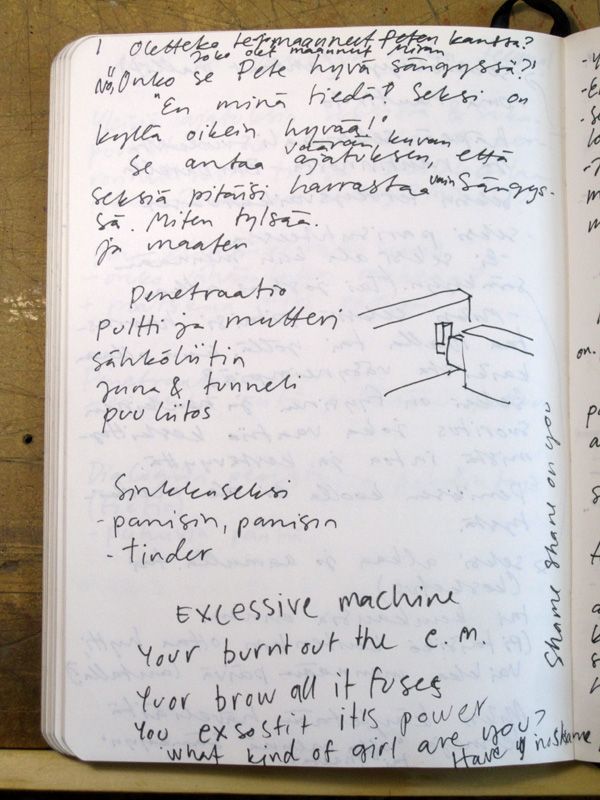 1 Oletteko te jo maanneet Peten kanssa?
Joko olet maannut Miran
No, Onko se Pete hyvä sängyssä?!
"En minä tiedä! Seksi on
kyllä oikein hyvää!"
Se antaa väärän kuvan
ajatuksen, että
seksiä pitäisi harrastaa vain sängys-
sä. Miten tylsää.
ja maaten
Penetraatio
Pultti ja mutteri
sähköliitin
juna & tunneli
puuliitos
Sinkkuseksi
- panisin, panisin
- tinder
Excessive machine
Your burnt out the e.m.
Yuor brow all it fuses
You exsostit it's power
what kind of girl are you?
Have u no shame
Shame shame on you
on.